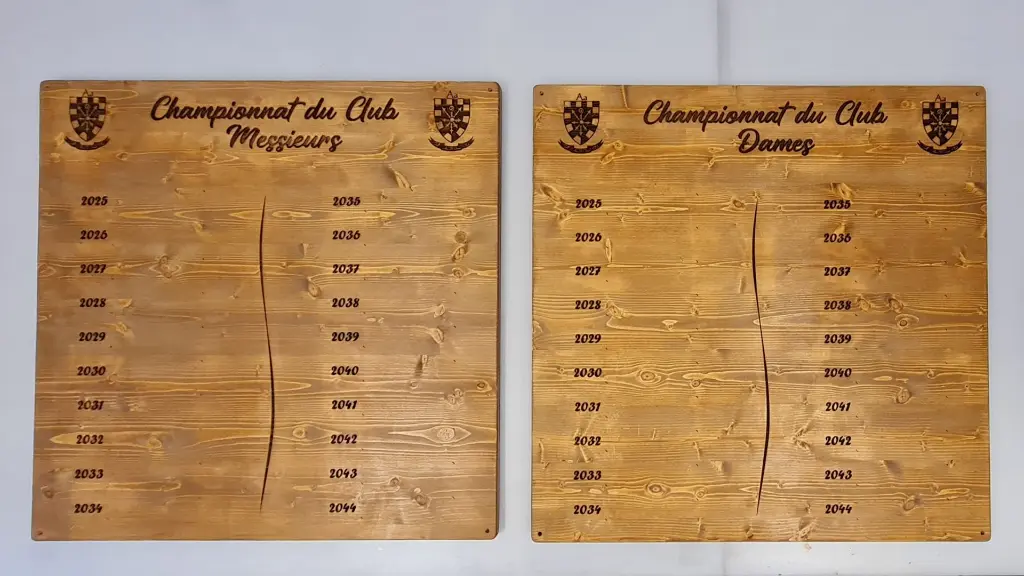 Championnat du Club
Messieurs
2025 2035
2026 2036
2027 2037
2028 2038
2029 2039
2030 2040
2031 2041
2032 2042
2033 2043
2034 2044
Championnat du Club
Dames
2025 2035
2026 2036
2027 2037
2028 2038
2029 2039
2030 2040
2031 2041
2032 2042
2033 2043
2034 2044